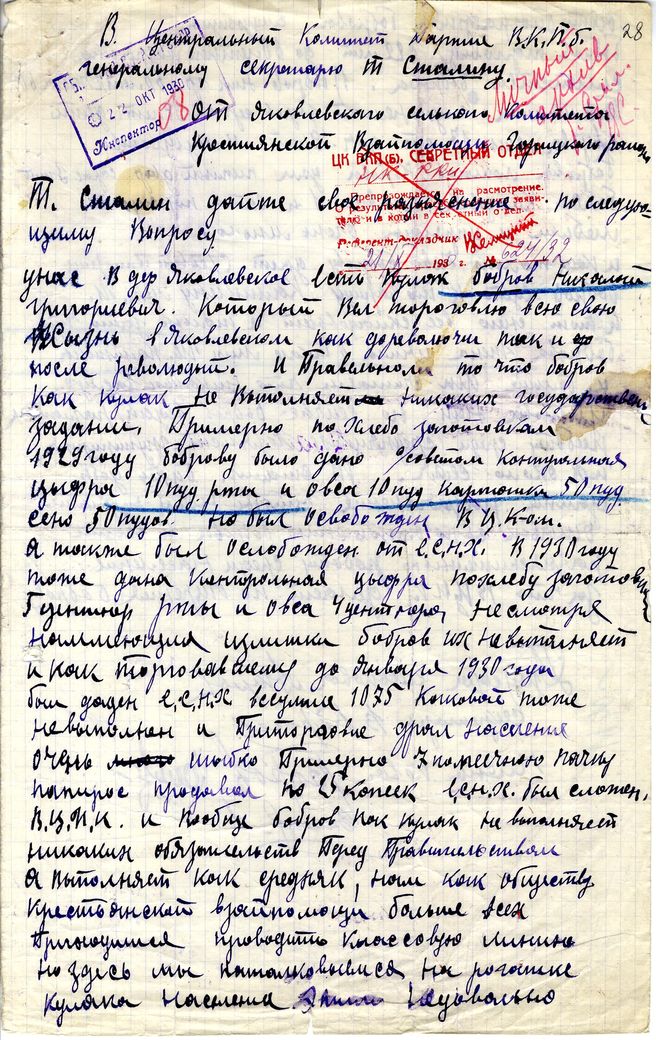 28
В Центральный Комитет Партии В.К.П.б.
генеральному секретарю Т Сталину.
22 ОКТ 1930
Инспектор 58
От Яковлевского сельского Комитета
Крестиянской Взаймопомощи Горицкого района
ЦК ВКП(б). СЕКРЕТНЫЙ ОТДЕЛ
Препровождается на рассмотрение.
Референт-докладчик
193 г. №
Т. Сталин дайте свое разъяснение по следую-
щиму Вопросу
унас В дер Яковлевское есть Кулак бобров Николай
григориевич. Который Вел торговлю всю свою
Жызнь вЯковлевском как дореволючи так и
после революцыи. И Правельноли то что бобров
Как кулак не Выполняет никаких государствен
задании, Примерно по Хлебо заготовкам
1929 году боброву было дано с/советом контрольная
цыфра 10 пуд. ржы и овса 10 пуд кармошка 50 пуд.
сено 50 пудов. но был Освобожден В.Ц.К-ом.
а также был ослобожден от Е.С.Н.Х. В 1930 году
тоже дана Контрольная цыфра похлебу заготовки
5 центнор ржы и овса 4 центнора, Несмотря
наимеющия излишки бобров их невыполняет
и как торговавшему до Января 1930 года
был даден Е.С.Н.Х всумме 1075 Каковой тоже
невыполнен и Приторговле драл Население
очень шыбко Примерно 7 копеечною пачку
папирос продовал по 25 копеек Е.С.Н.Х. был сложен.
В.Ц.И.К. и вообще бобров как кулак не выполняет
никаких обязательств Перед Правительством
а Выполняет как средняк, нам как обществу
крестьянской взаймопомощи больше всех
Приходится проводить классовую линию
но здесь мы наталковываемся на рогатки
кулака Население Недовольно